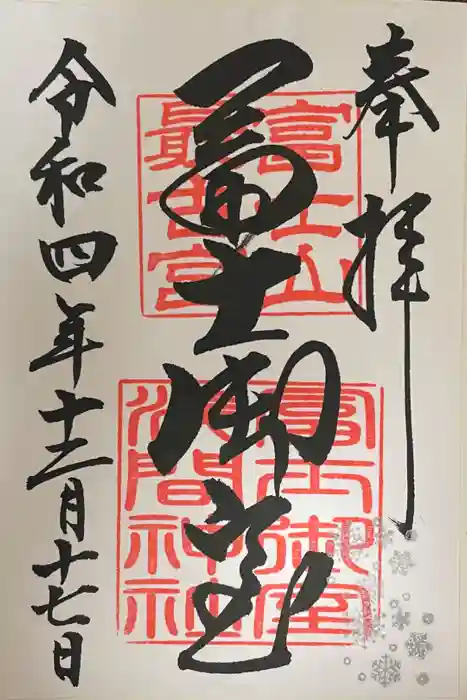 奉拝
冨士御室
富士山
最古宮
冨士御室
浅間神社
令和四年十二月十七日